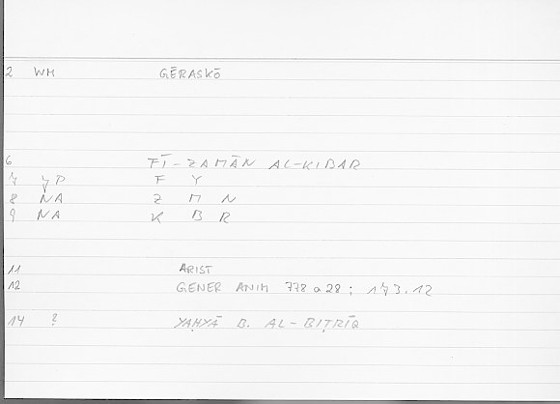 2 WM GĒRASKŌ
6 FĪ-ZAMĀN AL-KIBAR
7 YP F Y
8 NA Z M N
9 NA K B R
11 ARIST
12 GENER ANIM 778 a 28 : 173.12
14 ? YAḤYĀ B. AL-BIṬRĪQ